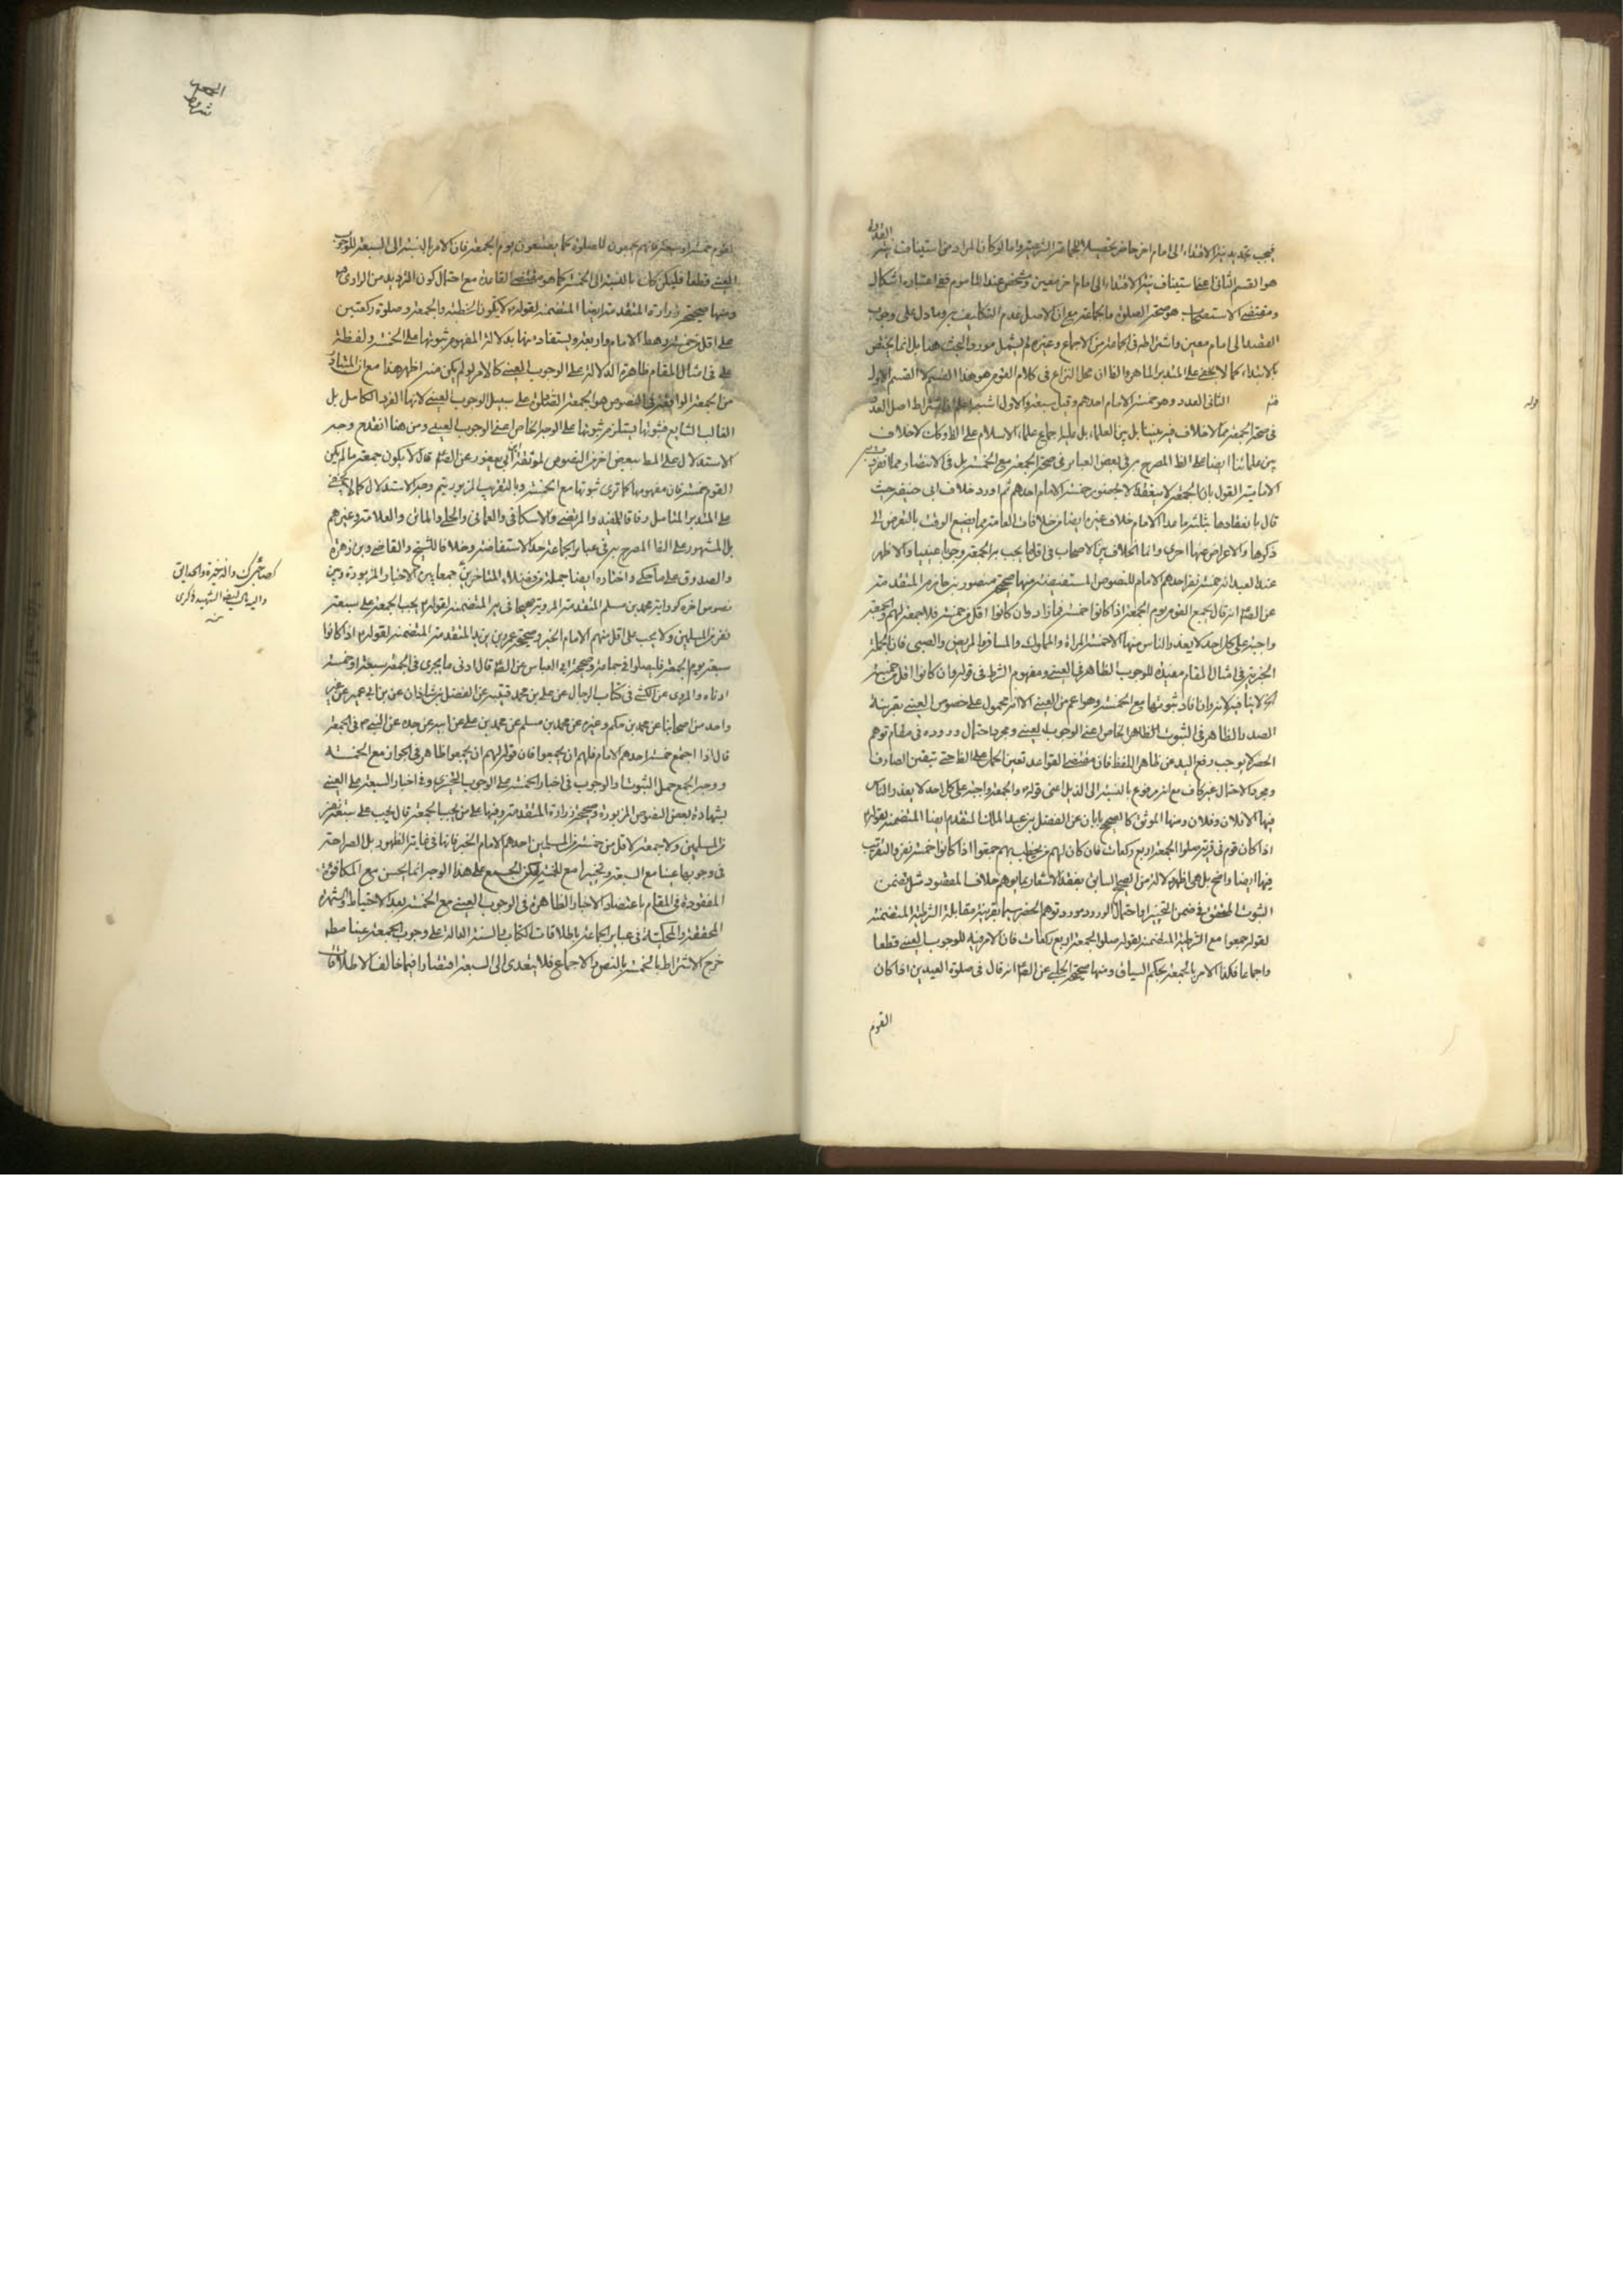 فيجب تجديد نية الاقتداء الى امام اخر حاضر تحصيلا للجماعة الشرعية واما لو كان المراد من استيناف نية القدوة
هو القسم الثاني اعني استيناف نية الاقتداء الى امام اخر معين مشخص عند الماموم ففي اعتباره اشكال
ومقتضى الاستصحاب هو صحة الصلوة ما بجماعة مع ان الاصل عدم التكليف به وما دل على وجوب
القصد الى امام معين واشتراطه في الجماعة من الاجماع وغيره لم يشمل مورد البحث هنا بل انما يختص
بالابتداء كما لا يخفى على المتدبر الماهر والظ ان محل النزاع في كلام القوم هو هذا القسم لا القسم الاول
الثاني العدد وهو خمسة الامام احدهم وقيل سبعة والاول اشبه اعلم ان اشتراط اصل العدد
في صحة الجمعة مما لا خلاف فيه بيننا بل بين العلماء بل عليه اجماع علماء الاسلام على الظ وكك لا خلاف
بين علمائنا ايضا على الظ المصرح به في بعض العبائر في صحة الجمعة مع الخمسة بل في الانتصار مما انفردت به
الامامية القول بان الجمعة لا ينعقد الا بحضور خمسة الامام احدهم ثم اورد خلاف ابي حنيفة حيث
قال بانعقادها بثلثة ما عدا الامام خلاف غيره ايضا من خلافات العامة مما يضيع الوقت بالتعرض الى
ذكرها والاعراض عنها احرى وانما الخلاف بين الاصحاب في اقل ما يجب به الجمعة وجوبا عينيا والاظهر
عند العبد انه خمسة نفر احدهم الامام للنصوص المستفيضة منها صحيحة منصور بن حازم المتقدمة
عن الصادق انه قال يجمع القوم يوم الجمعة اذا كانوا خمسة فما زاد وان كانوا اقل من خمسة فلا جمعة لهم والجمعة
واجبة على كل احد لا يعذر الناس منها الا خمسة المراة والمملوك والمسافر والمريض والصبي فان الجملة
الخبرية في امثال المقام مفيدة للوجوب الظاهر في العيني ومفهوم الشرط في قوله وان كانوا اقل من خمسة
الخ لا ينافيه لانه وان افاد ثبوتها مع الخمسة وهو اعم من العيني الا انه محمول على خصوص العيني بقرينة
الصدر الظاهر في الثبوت الظاهر الخاص اعني الوجوب العيني ومجرد احتمال وروده في مقام توهم
الحصر لا يوجب رفع اليد عن ظاهر اللفظ فان مقتضى القواعد تعين الحمل على الظ حتى تيقن الصارف
ومجرد الاحتمال غير كاف مع انه مرفوع بالنسبة الى الذيل اعني قوله والجمعة واجبة على كل احد لا يعذر الناس
فيها الا فلان وفلان ومنها الموثق كالصحيح بابان عن الفضل بن عبد الملك المتقدم ايضا المتضمنة لقوله
اذا كان قوم في قرية صلوا الجمعة اربع ركعات فان كان لهم من يخطب بهم جمعوا اذا كانوا خمسة نفر والتقريب
فيها ايضا واضح بل هي اظهر دلالة من الصحيح السابق بفقد الاشعار بما يوهم خلاف المقصود مثل تضمن
الثبوت المحقق في ضمن التخيير اما احتمال الورود مورد توهم الحضر سيما بقرينة مقابلة الشرطية المتضمنة
لقوله جمعوا مع الشرطية المتضمنة لقوله صلوا الجمعة اربع ركعات فان الامر فيه للوجوب العيني قطعا
واجماعا فكذا الامر بالجمعة بحكم السياق ومنها صحيحة الحلبي عن الصادق انه قال في صلوة العيدين اذا كان
القوم
القوم خمسة او سبعة فانهم يجمعون للصلوة كما يصنعون يوم الجمعة فان الامر بالنسبة الى السبعة للوجوب
العيني قطعا فليكن كك بالنسبة الى الخمسة كما هو مقتضى القاعدة مع احتمال كون الترديد من الراوي
ومنها صحيحة زرارة المتقدمة ايضا المتضمنة لقوله لا يكون الخطبة والجمعة وصلوة ركعتين
على اقل من خمسة رهط الامام واربعة ويستفاد منها بدلالة المفهوم ثبوتها على الخمسة ولفظة
على في امثال المقام ظاهرة الدلالة على الوجوب العيني كالامر لو لم يكن منه اظهر هذا مع ان المتبادر
من الجمعة الواقعة في النصوص هو الجمعة الثابتة على سبيل الوجوب العيني لانها الفرد الكامل بل
الغالب الشايع فثبوتها يستلزم ثبوتها على الوجه الخاص اعني الوجوب العيني ومن هنا انقدح وجه
الاستدلال على المط ببعض اخر من النصوص كموثقة ابن ابي يعفور عن الصادق قال لا يكون جمعة ما لم يكن
القوم خمسة فان مفهومها كما ترى ثبوتها مع الخمسة وبالتقريب المزبور يتم وجه الاستدلال كما لا يخفى
على المتدبر المتامل وفاقا للمفيد والمرتضى والاسكافي والعماني والحلي والماتن والعلامة وغيرهم
بل المشهور على الظ المصرح به في عبائر الجماعة حد الاستفاضة وخلافا للشيخ والقاضي وبن زهرة
والصدوق على ما حكي واختاره ايضا جملة من فضلاء المتاخرين جمعا بين الاخبار المزبورة وبين
نصوص اخر كرواية محمد بن مسلم المتقدمة المروية صحيحا في يه المتضمنة لقوله يجب الجمعة على سبعة
نفر من المسلمين ولا يجب على اقل منهم الامام الخبر وصحيحة عمر بن يزيد المتقدمة المتضمنة لقوله اذا كانوا
سبعة يوم الجمعة فليصلوا في جماعة وصحيحة ابي العباس عن الصادق قال ادنى ما يجزى في الجمعة سبعة او خمسة
ادناه والمروى عن الكشي في كتاب الرجال عن علي بن محمد قتيبة عن الفضل بن شاذان عن بن ابي عمير عن غير
واحد من اصحابنا عن محمد بن حكيم وغيره عن محمد بن مسلم عن محمد بن علي عن ابيه عن جده عن النبي ص في الجمعة
قال اذا اجتمع خمسة احدهم الامام فلهم ان يجمعوا فان قوله لهم ان يجمعوا ظاهر في الجواز مع الخمسة
ووجه الجمع حمل الثبوت والوجوب في اخبار الخمسة على الوجوب التخييري وفي اخبار السبعة على العيني
بشهادة بعض النصوص المزبورة وصحيحة زرارة المتقدمة وفيها على من يجب الجمعة قال يجب على سبعة نفر
من المسلمين ولا جمعة لاقل من خمسة من المسلمين احدهم الامام الخبر فانها في غاية الظهور بل الصراحة
في وجوبها عينا مع السبعة وتخييرا مع الخمسة لكن الجمع على هذا الوجه انما يحسن مع المكافئة
المفقودة في المقام باعتضاد الاخبار الظاهرة في الوجوب العيني مع الخمسة بعد الاحتياط والشهرة
المحققة والمحكية في عبائر الجماعة باطلاقات الكتاب والسنة الدالة على وجوب الجمعة عينا مطلقا
خرج الاشتراط بالخمسة بالنص والاجماع فلا يتعدى الى السبعة اقتصارا فيما خالف الاطلاقات
كصاحبي ك والذخيرة والحدائق
واليه مال الشهيد في الذكرى
منه